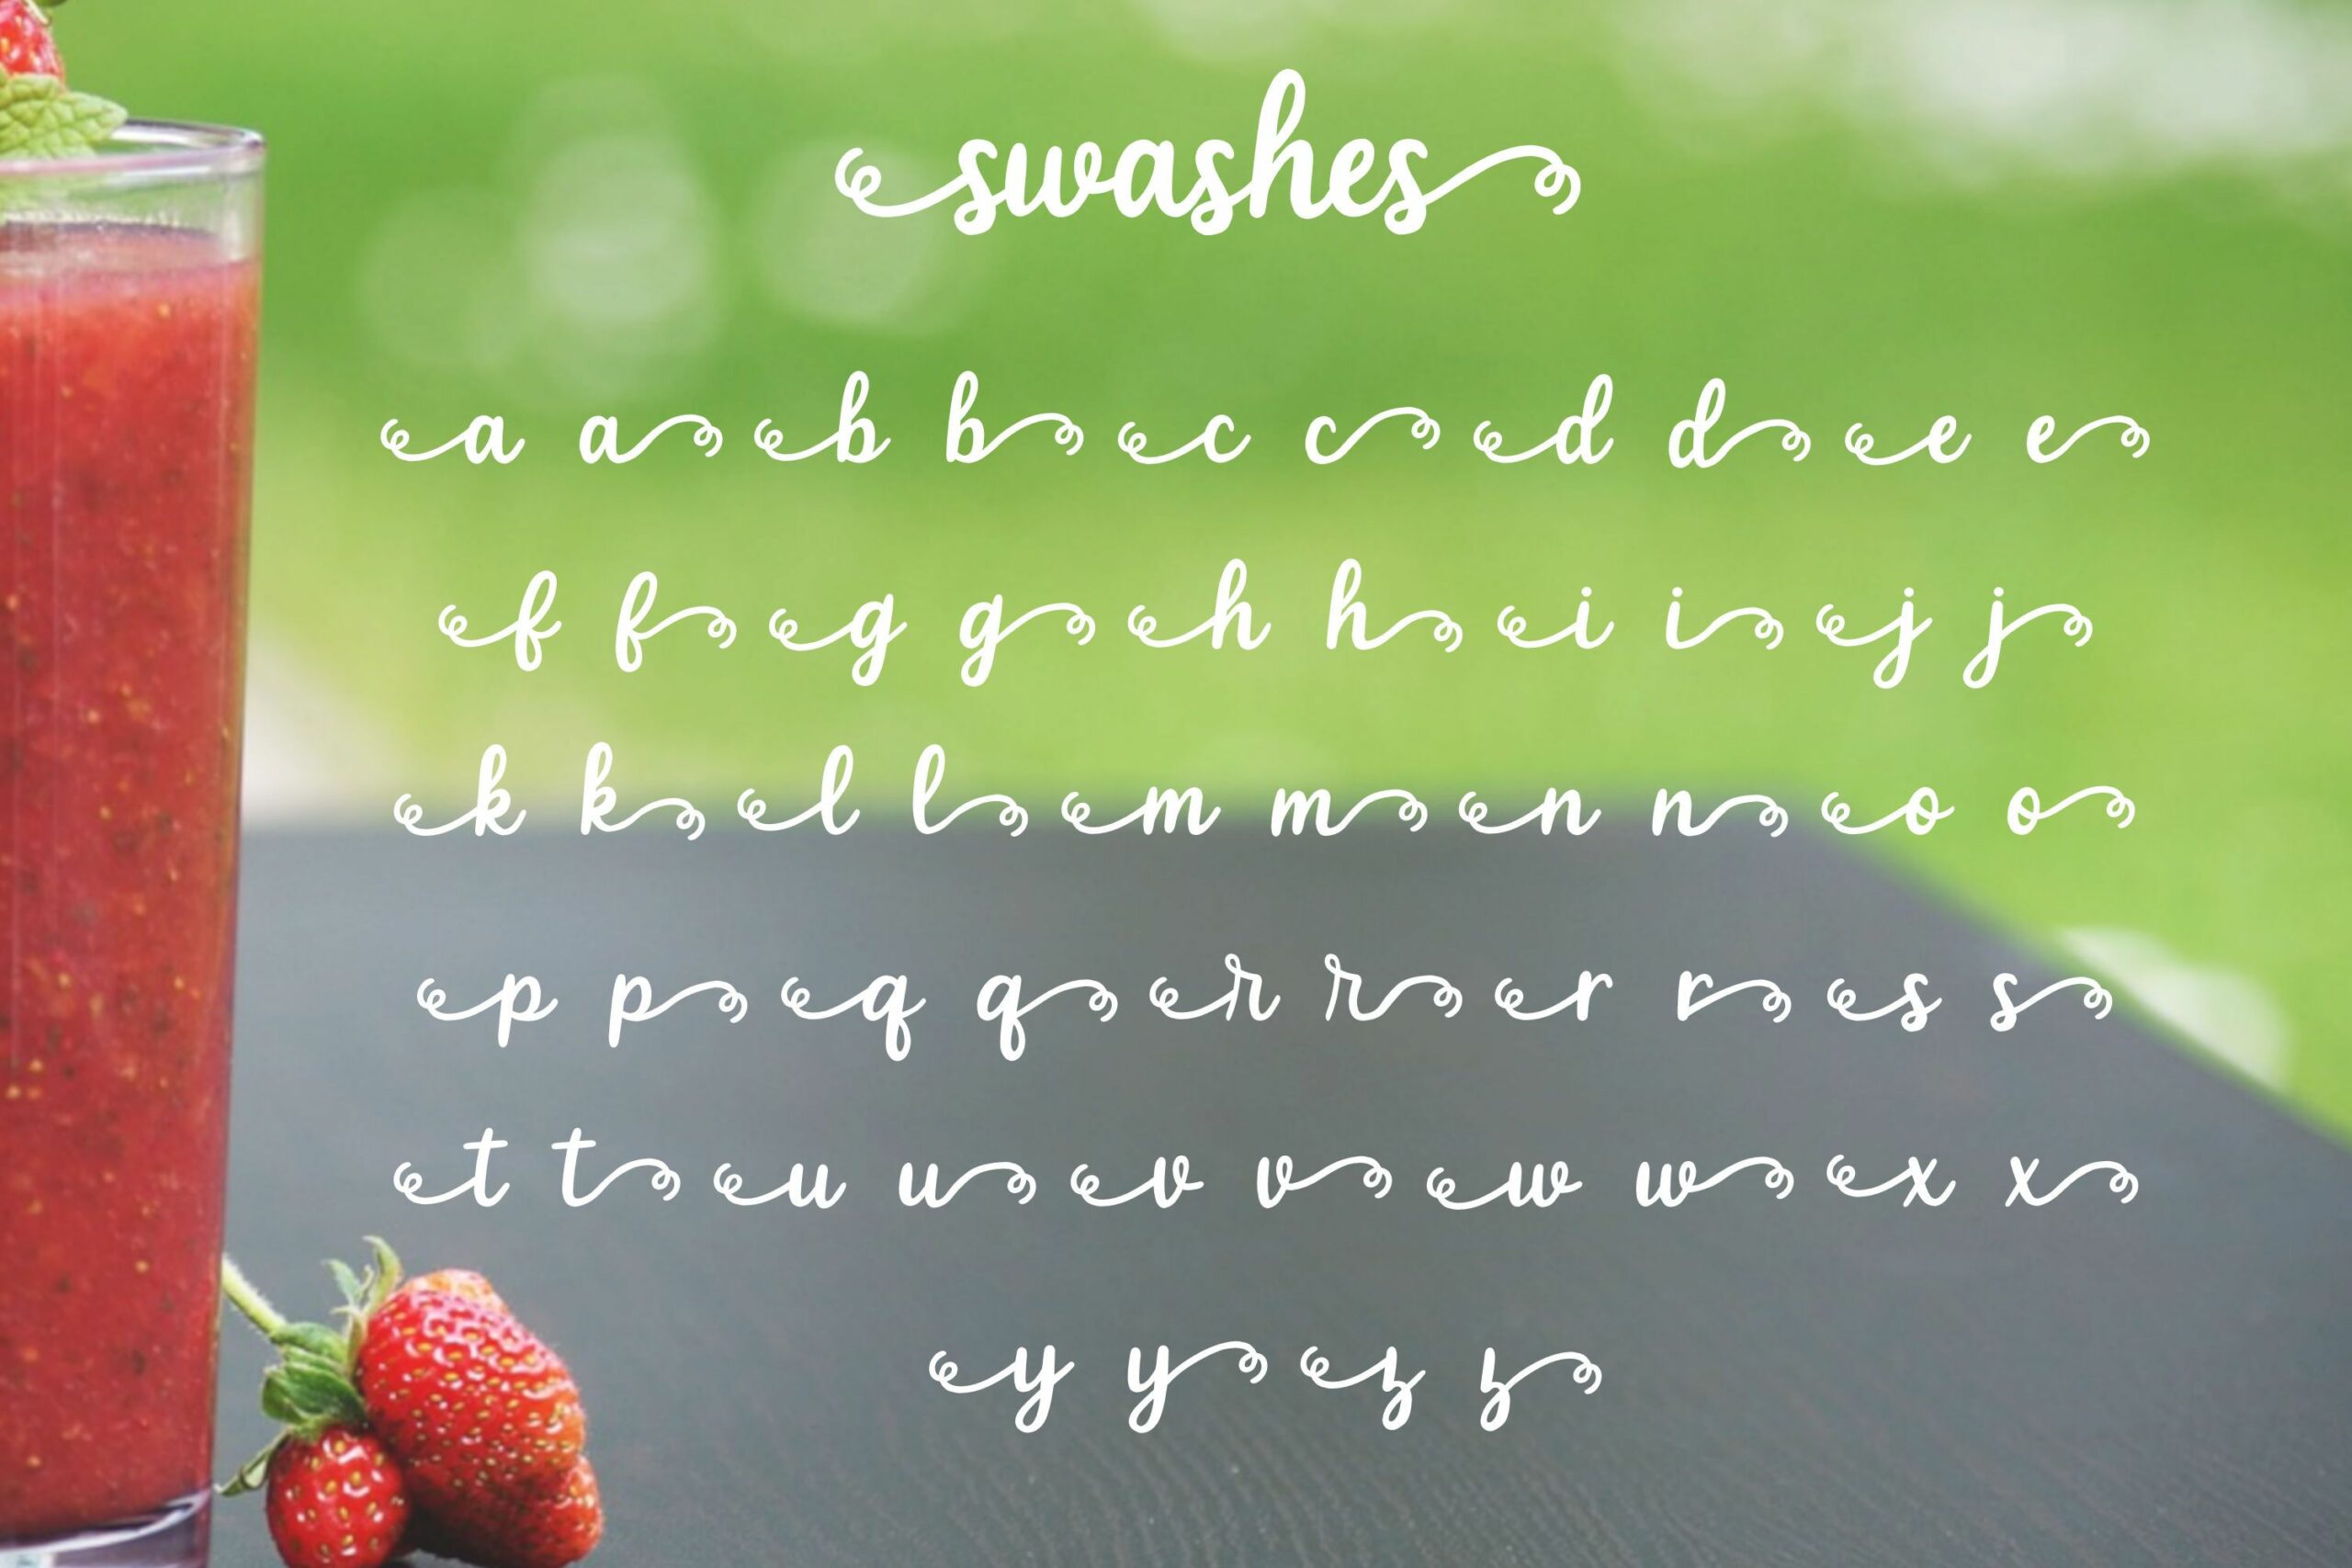 swashes
a a b b c c d d e e
f f g g h h i i j j
k k l l m m n n o o
p p q q r r r r s s
t t u u v v w w x x
y y z z